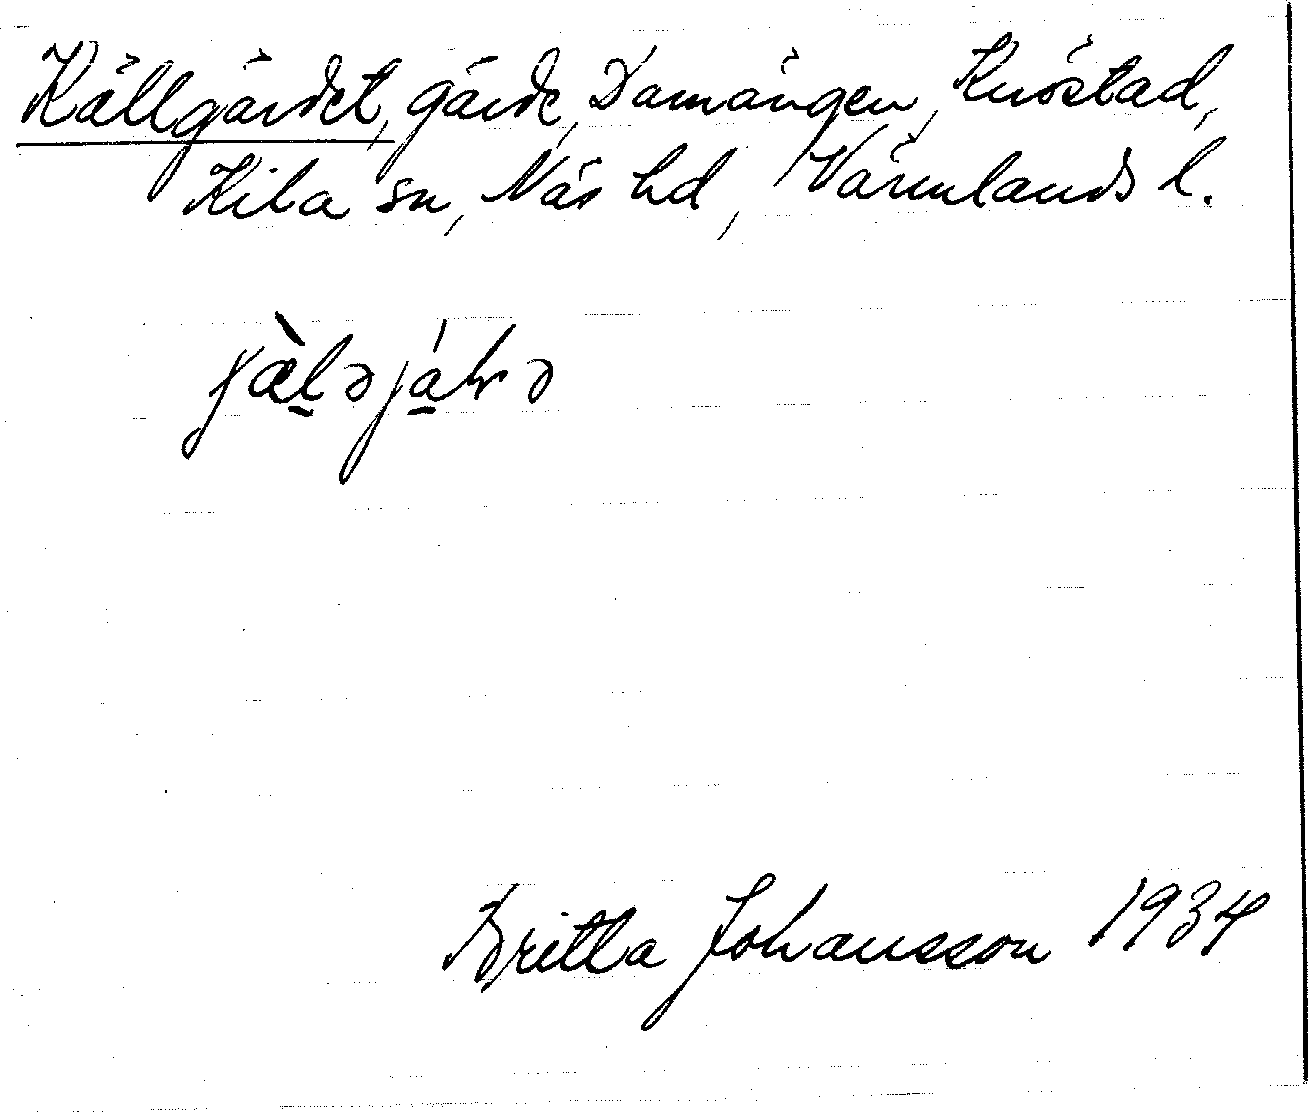 Källgärdet, gärde, Damängen, Knöstad,
Kila sn, Näs hd, Värmlands l.
Britta Johansson 1934